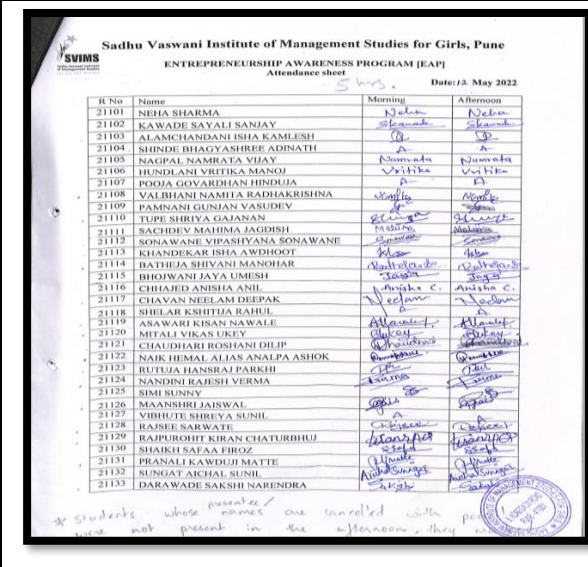 SVIMS
Sadhu Vaswani Institute of Management Studies for Girls, Pune
ENTREPRENEURSHIP AWARENESS PROGRAM [EAP]
Attendance sheet
5 hrs.
Date: 12 May 2022
R No Name Morning Afternoon
21101 NEHA SHARMA Neha Neha
21102 KAWADE SAYALI SANJAY
21103 ALAMCHANDANI ISHA KAMLESH
21104 SHINDE BHAGYASHREE ADINATH A A
21105 NAGPAL NAMRATA VIJAY Namrata Namrata
21106 HUNDLANI VRITIKA MANOJ Vritika Vritika
21107 POOJA GOVARDHAN HINDUJA A A
21108 VALBHANI NAMITA RADHAKRISHNA Namita Namita
21109 PAMNANI GUNJAN VASUDEV
21110 TUPE SHRIYA GAJANAN
21111 SACHDEV MAHIMA JAGDISH Mahima Mahima
21112 SONAWANE VIPASHYANA SONAWANE Sonawane Sonawane
21113 KHANDEKAR ISHA AWDHOOT
21114 BATHEJA SHIVANI MANOHAR
21115 BHOJWANI JAYA UMESH Jaya Jaya
21116 CHHAJED ANISHA ANIL Anisha C. Anisha C.
21117 CHAVAN NEELAM DEEPAK Neelam Neelam
21118 SHELAR KSHITIJA RAHUL A A
21119 ASAWARI KISAN NAWALE
21120 MITALI VIKAS UKEY
21121 CHAUDHARI ROSHANI DILIP
21122 NAIK HEMAL ALIAS ANALPA ASHOK
21123 RUTUJA HANSRAJ PARKHI
21124 NANDINI RAJESH VERMA
21125 SIMI SUNNY
21126 MAANSHRI JAISWAL
21127 VIBHUTE SHREYA SUNIL A A
21128 RAJSEE SARWATE
21129 RAJPUROHIT KIRAN CHATURBHUJ
21130 SHAIKH SAFAA FIROZ
21131 PRANALI KAWDUJI MATTE
21132 SUNGAT AICHAL SUNIL
21133 DARAWADE SAKSHI NARENDRA Sakshi Sakshi
presentee/
* Students whose names are cancelled with
were not present in the afternoon. they